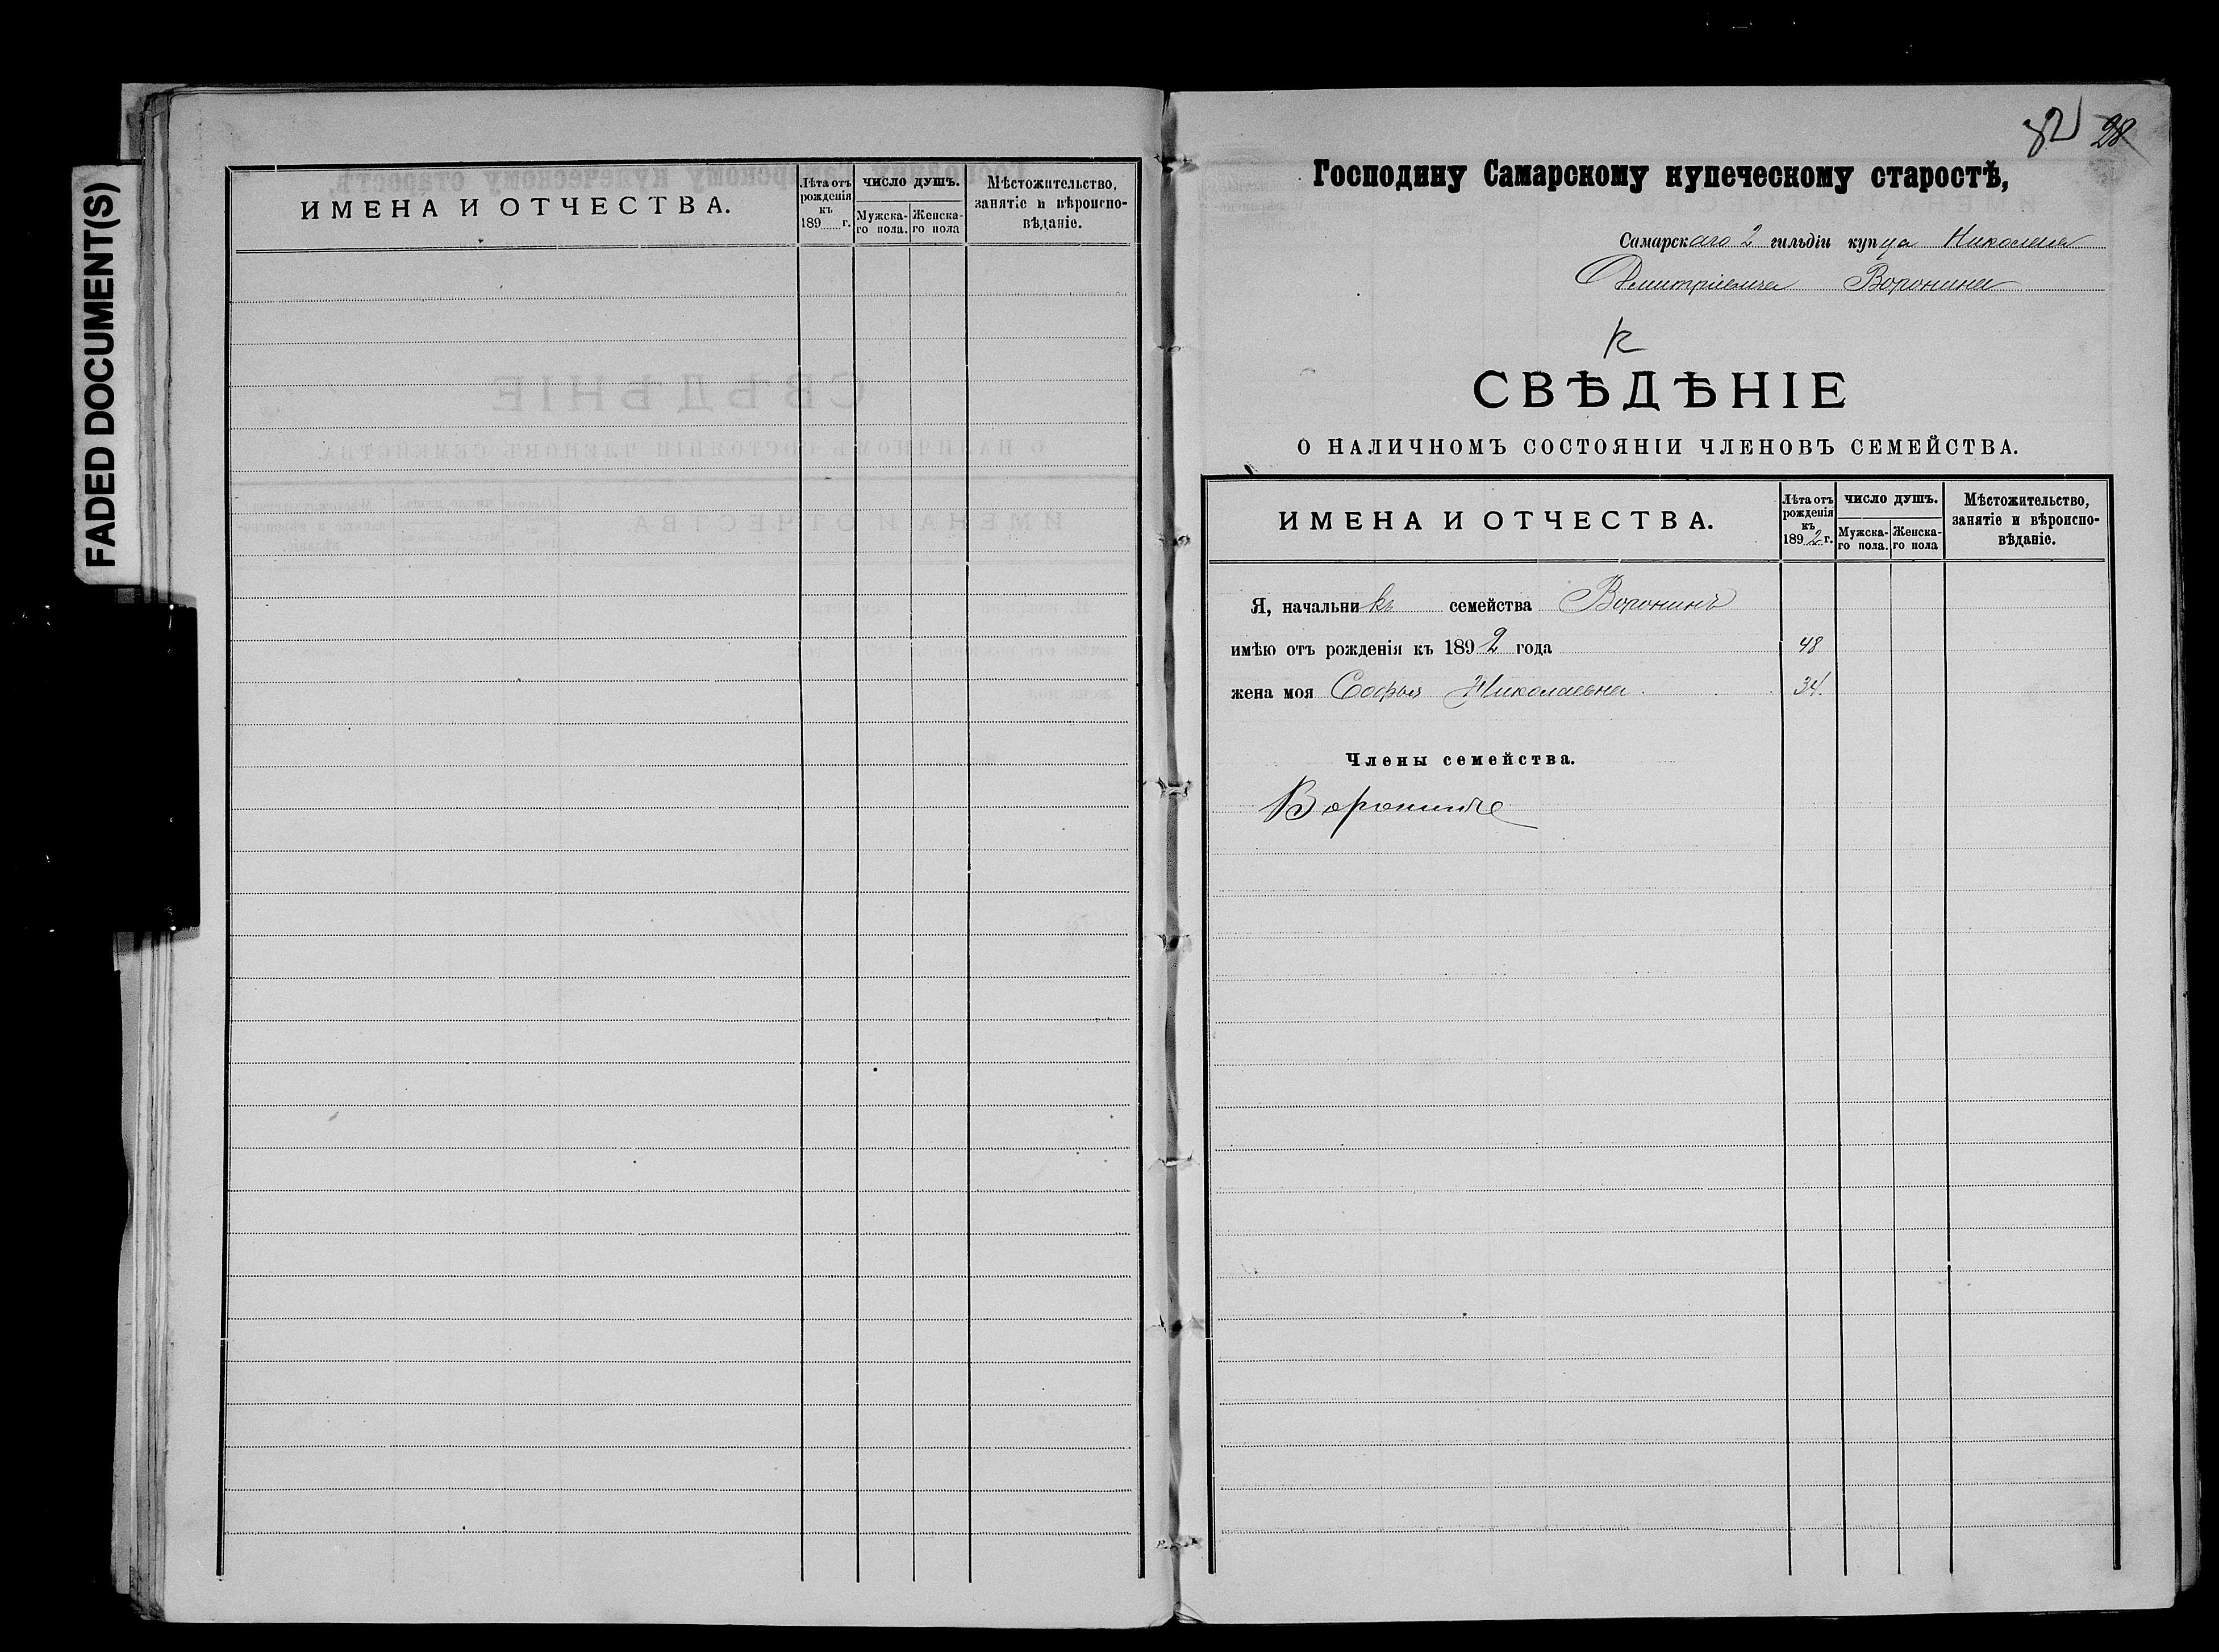 FADED DOCUMENT(S)
ИМЕНА И ОТЧЕСТВА.
Лѣта отъ рожденія къ 189 г.
число душъ.
Мужска-го пола.
Женска-го пола
Мѣстожительство, занятіе и вѣроиспо-вѣданіе.
28
Господину Самарскому купеческому старостѣ,
Самарскаго 2 гильдіи купца Николая
Дмитріевича Воронина
СВѢДѢНІЕ
О НАЛИЧНОМЪ СОСТОЯНІИ ЧЛЕНОВЪ СЕМЕЙСТВА.
ИМЕНА И ОТЧЕСТВА.
Лѣта отъ рожденія къ 1892 г.
число душъ.
Мужска-го пола.
Женска-го пола
Мѣстожительство, занятіе и вѣроиспо-вѣданіе.
Я, начальникъ семейства Воронинъ
имѣю отъ рожденія къ 1892 года 48
жена моя Софья Николаевна 34.
Члены семейства.